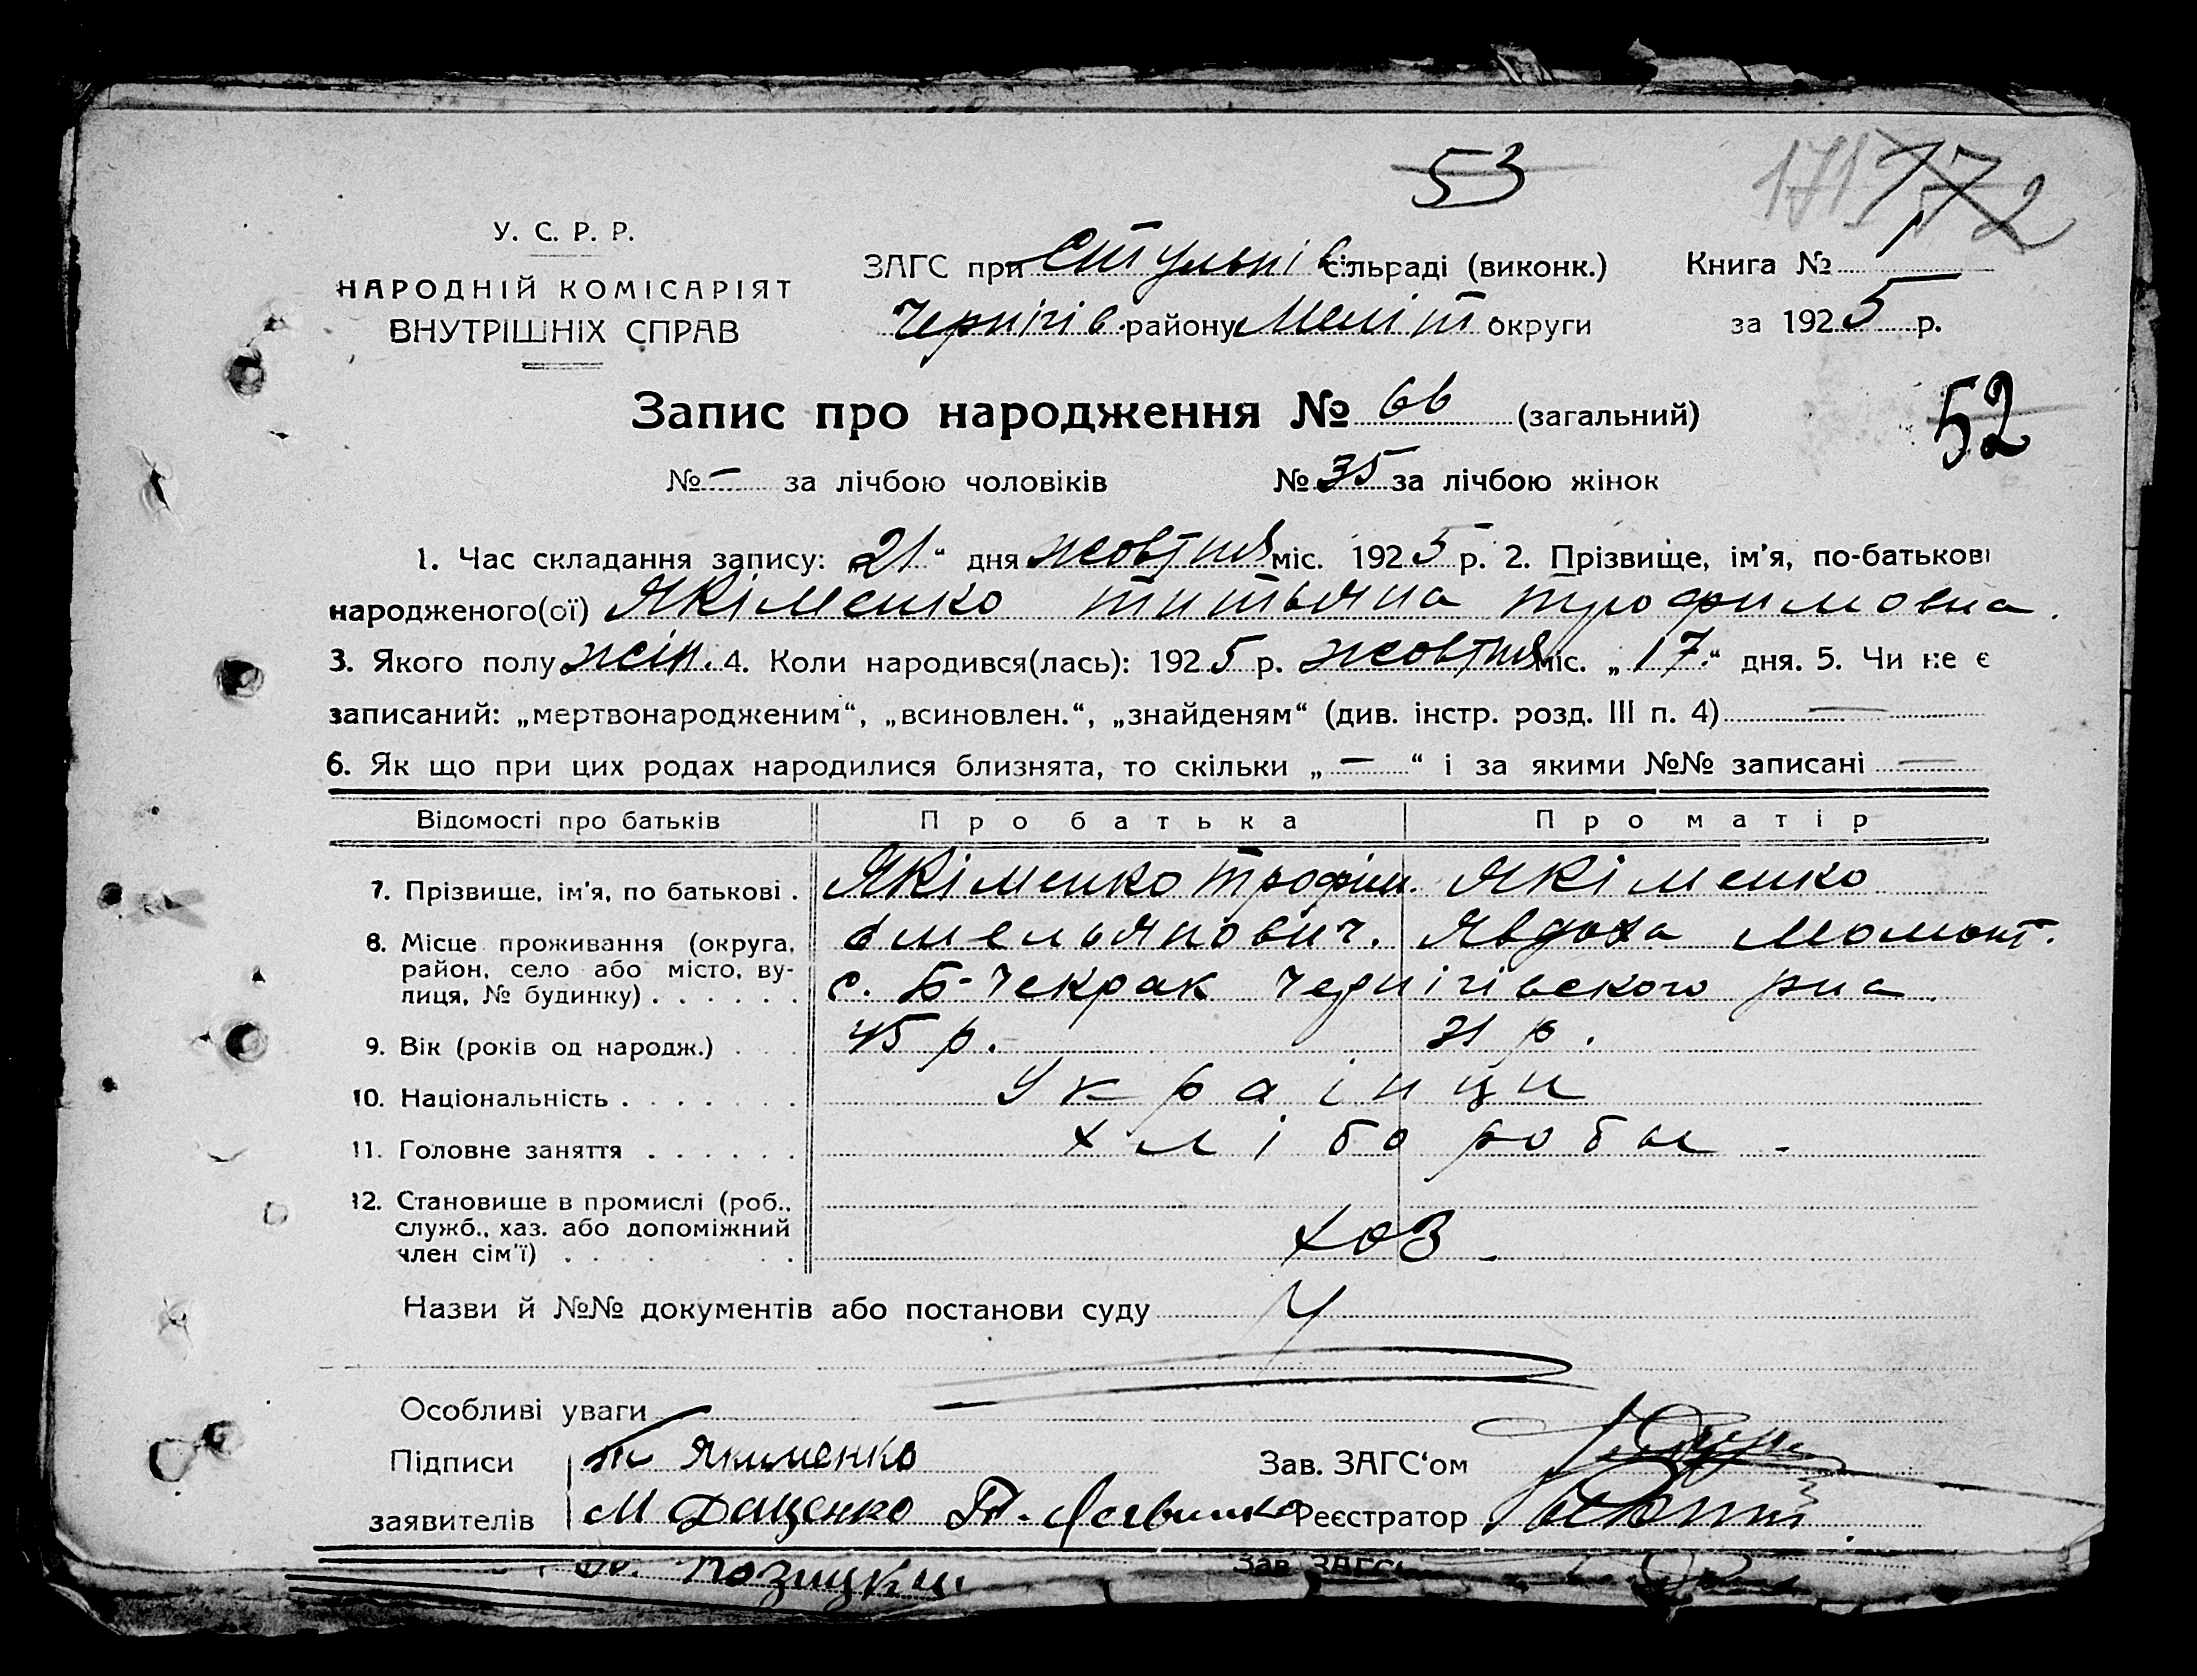 53
171 172
У. С. Р. Р.
НАРОДНІЙ КОМІСАРІЯТ
ВНУТРІШНІХ СПРАВ
ЗАГС при Стульнів сільраді (виконк.)
Чернігів. району Меліт округи
Книга № 1
за 1925 р.
Запис про народження № 66 (загальний)
52
№ — за лічбою чоловіків № 35 за лічбою жінок
1. Час складання запису: „21“ дня жовтня міс. 1925 р. 2. Прізвище, ім'я, по-батькові
народженого(ої) Якіменко Титьяна Трофимовна.
3. Якого полу жін. 4. Коли народився(лась): 1925 р. жовтня міс. „17.“ дня. 5. Чи не є
записаний: „мертвонародженим“, „всиновлен.“, „знайденям“ (див. інстр. розд. III п. 4) —
6. Як що при цих родах народилися близнята, то скільки „—“ і за якими №№ записані —
Відомості про батьків Про батька Про матір
7. Прізвище, ім'я, по батькові . Якіменко Трофим. Якіменко
Омельянович. Явдоха Момонт.
8. Місце проживання (округа,
район, село або місто, ву-
лиця, № будинку) . . . . . . с. Б-Чекрак Чернігівского рна
9. Вік (років од народж.) . . . 45 р. 31 р.
10. Національність . . . . . . . Українци
11. Головне заняття . . . . . . хліборобы -
12. Становище в промислі (роб.,
служб., хаз. або допоміжний
член сім'ї) . . . . . . . хоз -
Назви й №№ документів або постанови суду
Особливі уваги
Підписи Т Якименко Зав. ЗАГС'ом
заявителів М Даценко Реєстратор
Позицки
Зав. ЗАГС'